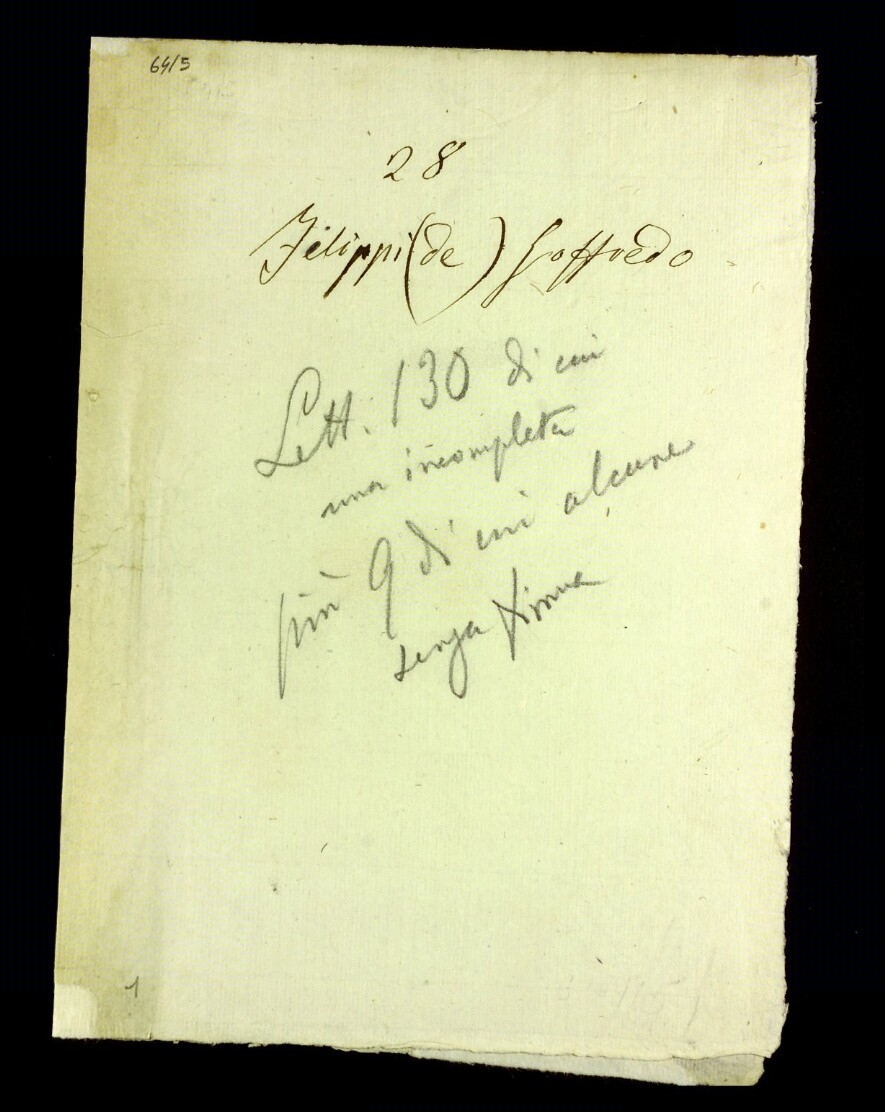 64/5
28
Filippi (de) Goffredo
Lett. 130 di cui
una incompleta
più 9 di cui alcune
senza firma
1